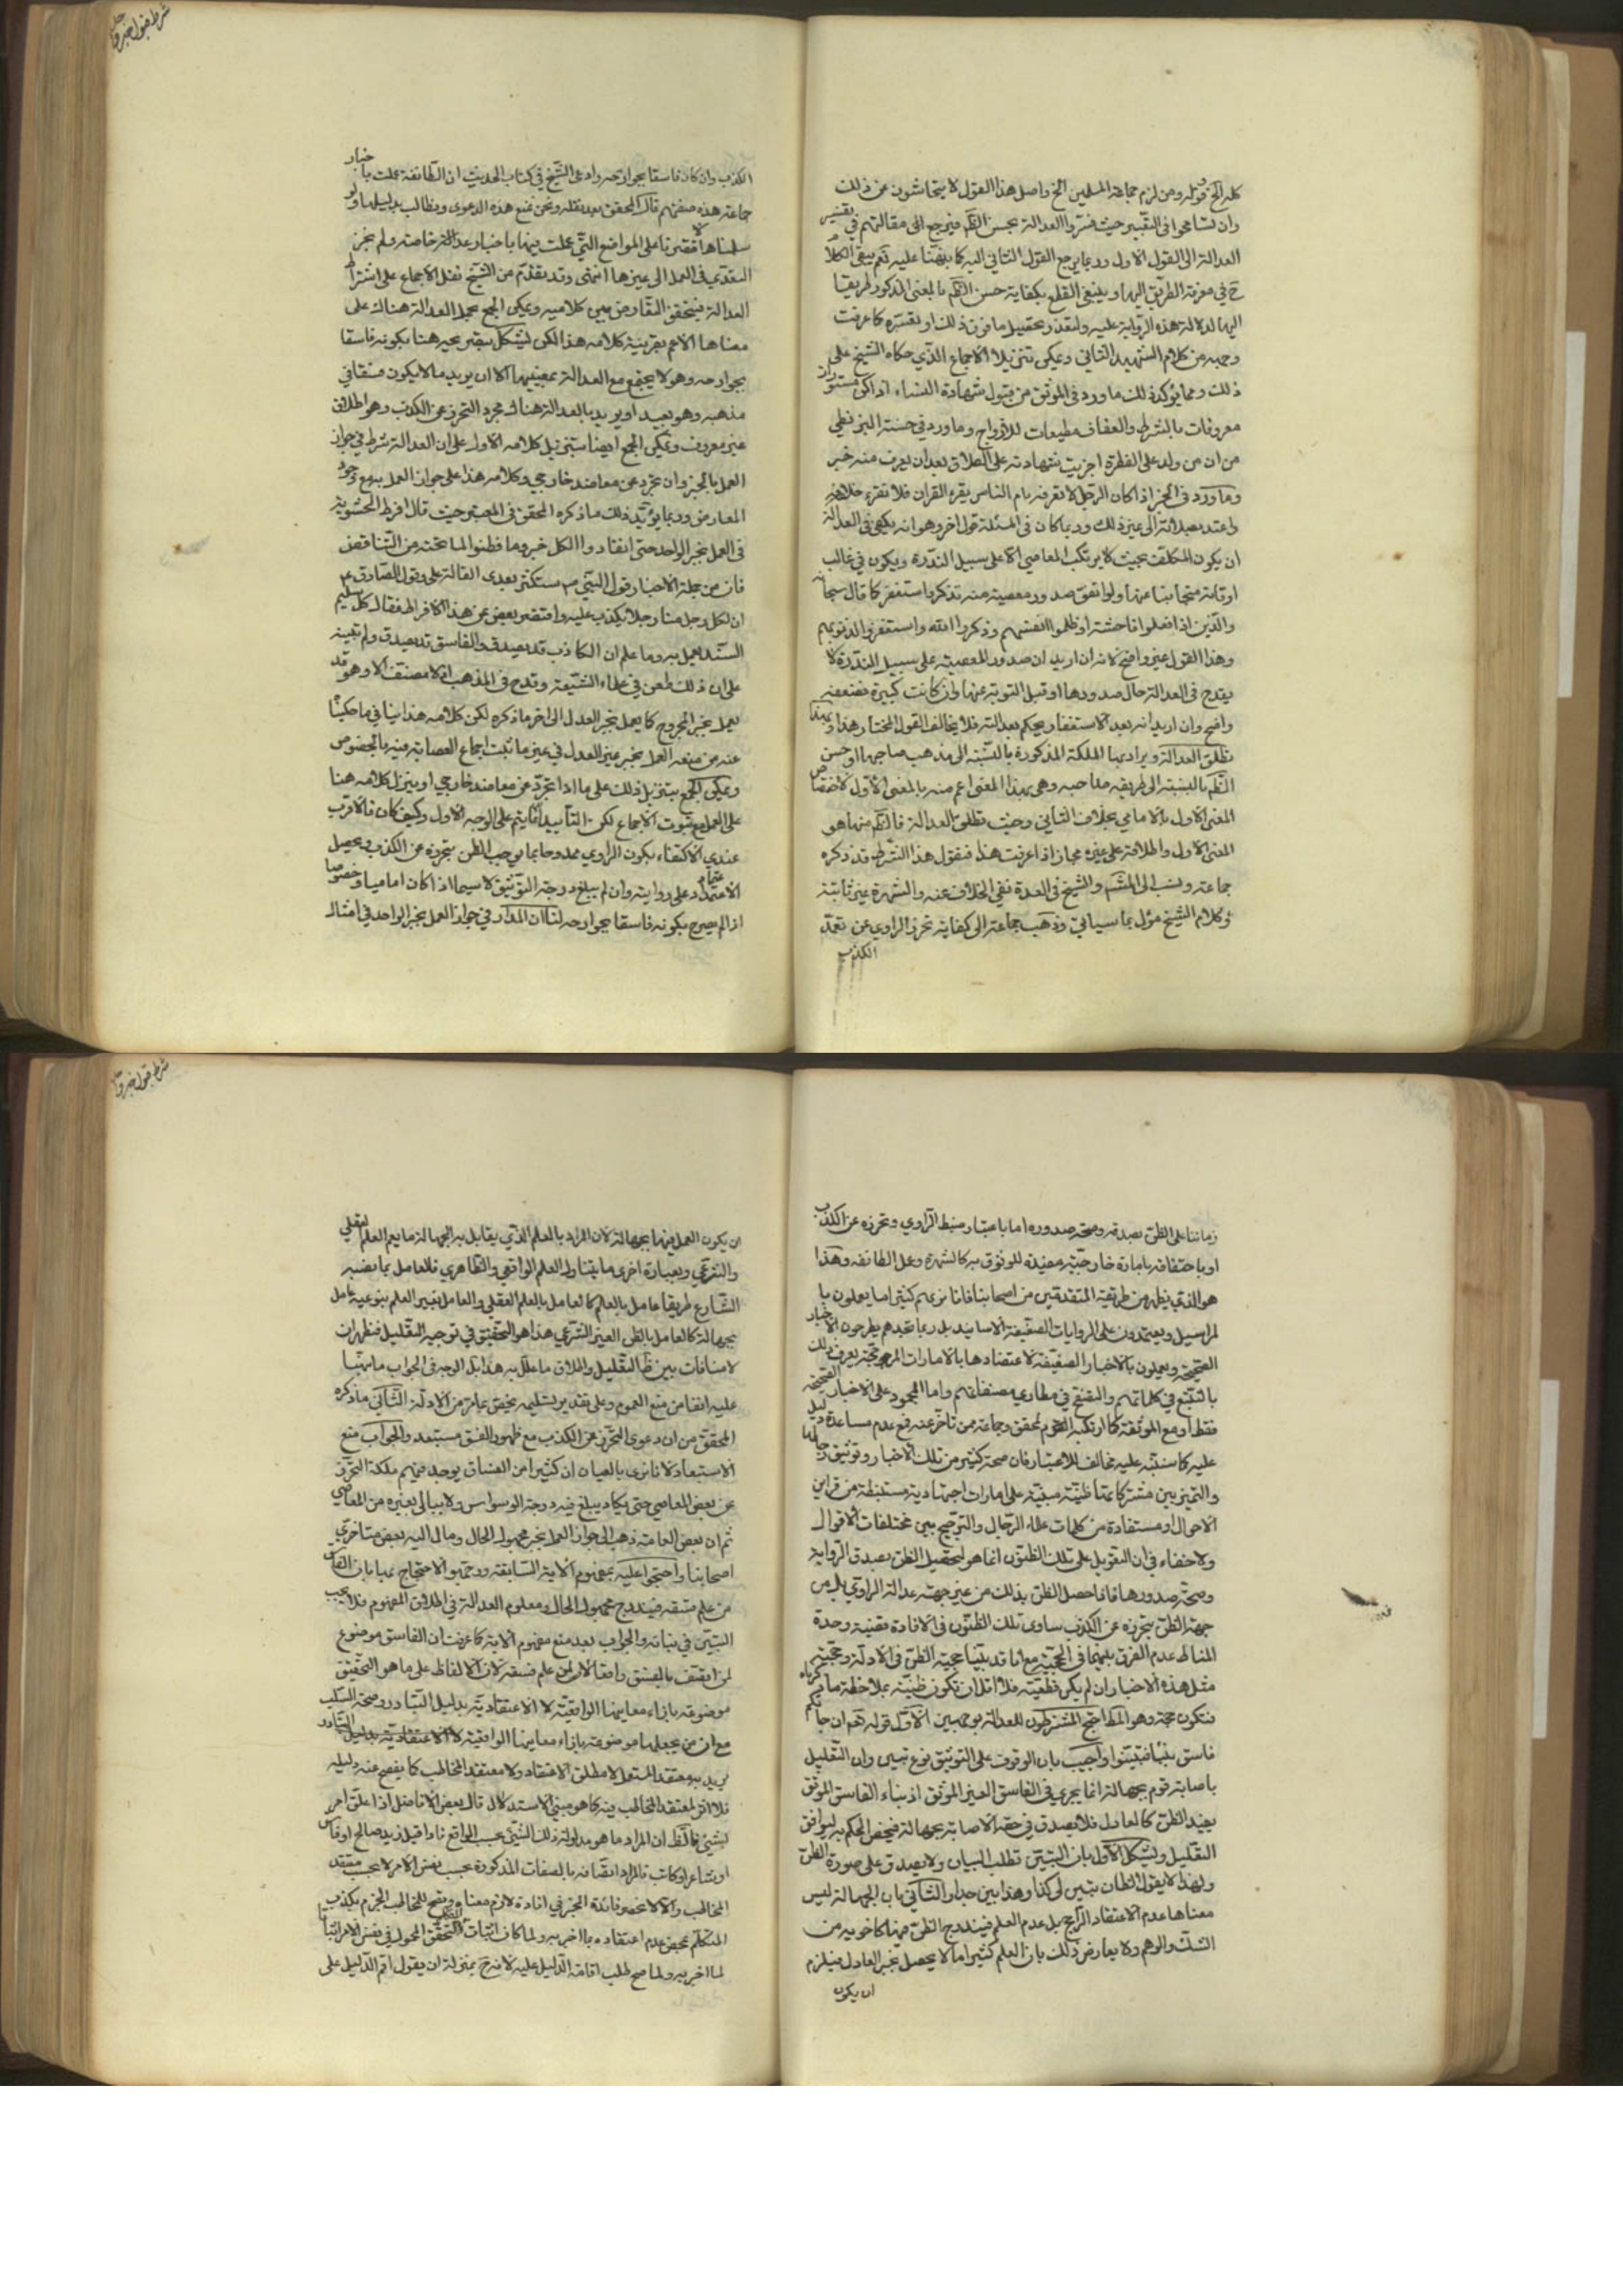 كله الخ وقوله ومن لزم جماعة المسلمين الخ واصل هذا القول لا يتحاشون عن ذلك
وان تسامحوا في التعبير حيث فسروا العدالة بحسن الظاهر فيرجع الى مقالتهم في تفسير
العدالة الى القول الاول وربما يرجع القول الثاني اليه كما نبهنا عليه نعم يبقى الكلام
ح في معرفة الطريق اليها وينبغي القطع بكفاية حسن الظاهر بالمعنى المذكور طريقا
اليها لدلالة هذه الرواية عليه ولتعذر تحصيل ما فوق ذلك او تعسره كما عرفت
وجهه من كلام الشهيد الثاني ويمكن تنزيل الاجماع الذي حكاه الشيخ على
ذلك ومما يؤكد ذلك ما ورد في الموثق من قبول شهادة النساء اذا كن مستورات
معروفات بالستر والعفاف مطيعات للازواج وما ورد في حسنة البزنطي
من ان من ولد على الفطرة اجزيت شهادته على الطلاق بعد ان يعرف منه خير
وما ورد في الخبر اذا كان الرجل لا تعرفه يام الناس يقرء القران فلا تقرء خلفه
واعتد بصلاته الى غير ذلك وربما كان في المسئلة قول اخر وهو انه يكفي في العدالة
ان يكون المكلف بحيث لا يرتكب المعاصي الا على سبيل الندرة ويكون في غالب
اوقاته متجانبا عنها ولو اتفق صدور معصية منه تذكر واستغفر كما قال سبحانه
والذين اذا فعلوا فاحشة او ظلموا انفسهم وذكروا الله واستغفروا لذنوبهم
وهذا القول غير واضح لانه ان اريد ان صدور المعصية على سبيل الندرة لا
يقدح في العدالة حال صدورها او قبل التوبة عنها وان كانت كبيرة فضعفه
واضح وان اريد انه بعد الاستغفار يحكم بعدالته فلا يخالف القول المختار هذا وربما
تطلق العدالة ويراد بها الملكة المذكورة بالنسبة الى مذهب صاحبها او حسن
الظاهر بالنسبة الى طريقة صاحبه وهي بهذا المعنى اعم منه بالمعنى الاول لاختصاص
المعنى الاول بالامامي بخلاف الثاني وحيث تطلق العدالة فالظاهر منها هو
المعنى الاول واطلاقه على غيره مجاز اذا عرفت هذا فنقول هذا الشرط قد ذكره
جماعة ونسب الى المشهور والشيخ في العدة نفي الخلاف عنه والشهرة غير ثابتة
وكلام الشيخ مؤل بما سيأتي وذهب جماعة الى كفاية تحرز الراوي عن تعمد
الكذب
شرط قبول خبر
الكذب وان كان فاسقا بجوارحه وادعى الشيخ في كتاب الحديث ان الطائفة عملت باخبار
جماعة هذه صفتهم قال المحقق بعد نقله ونحن نمنع هذه الدعوى ونطالب بدليلها ولو
سلمناها لاقتصرنا على المواضع التي عملت فيها باخبار خاصة ولم يجز
التعدي في العمل الى غيرها انتهى وقد تقدم من الشيخ نقل الاجماع على اشتراط
العدالة فيتحقق التعارض بين كلاميه ويمكن الجمع بحمل العدالة هناك على
معناها الاعم بقرينة كلامه هذا لكن يشكل بتصريحه هنا بكونه فاسقا
بجوارحه وهو لا يجتمع مع العدالة بمعنييها الا ان يريد ما لا يكون فسقا في
مذهبه وهو بعيد او يريد بالعدالة هناك مجرد التحرز عن الكذب وهو اطلاق
غير معروف ويمكن الجمع ايضا بتنزيل كلامه الاول على ان العدالة شرط في جواز
العمل بالخبر وان تجرد عن معاضد خارجي وكلامه هذا على جواز العمل به مع وجود
المعارض وربما يؤيد ذلك ما ذكره المحقق في المعتبر حيث قال افرط الحشوية
في العمل بخبر الواحد حتى انقادوا لكل خبر وما فطنوا لما تحته من التناقض
فان من جملة الاخبار قول النبي ص ستكثر بعدي القالة علي وقول الصادق ع
ان لكل رجل منا رجلا يكذب عليه واقتصر بعض عن هذا الافراط فقال كل سليم
السند يعمل به وما علم ان الكاذب قد يصدق والفاسق قد يصدق ولم يتنبه
على ان ذلك طعن في علماء الشيعة وقدح في المذهب اذ لا مصنف الا وهو قد
يعمل بخبر المجروح كما يعمل بخبر العدل الى اخر ما ذكره لكن كلامه هذا ينافي ما حكينا
عنه من منعه العمل بخبر غير العدل في غير ما ثبت اجماع العصابة فيه بالخصوص
ويمكن الجمع بتنزيل ذلك على ما اذا تجرد عن معاضد خارجي او بتنزيل كلامه هنا
على العمل مع ثبوت الاجماع لكن التأييد انما يتم على الوجه الاول وكيف كان فالاقرب
عندي الاكتفاء بكون الراوي ممدوحا بما يوجب الظن بتحرزه عن الكذب ويحصل
الاعتماد على روايته وان لم يبلغ درجة التوثيق لا سيما اذا كان اماميا وخصوصا
اذا لم يصرح بكونه فاسقا بجوارحه لنا ان المدار في جواز العمل بخبر الواحد في امثال
زماننا على الظن بصدقه وصحة صدوره اما باعتبار ضبط الراوي وتحرزه عن الكذب
او باحتفافه بامارة خارجية مفيدة للوثوق به كالشهرة وعمل الطائفة وهذا
هو الذي يظهر من طريقة المتقدمين من اصحابنا فانا نريهم كثيرا ما يعملون با
لمراسيل ويعتمدون على الروايات الضعيفة الاسانيد بل ربما نجدهم يطرحون الاخبار
الصحيحة ويعملون بالاخبار الضعيفة لاعتضادها بالامارات المرجحة يعرف ذلك
بالتتبع في كلماتهم والتصفح في مطاوي مصنفاتهم واما الجمود على الاخبار الصحيحة
فقط او مع الموثقة كما ارتكبه المحقق وجماعة ممن تاخر عنه فمع عدم مساعدة دليل
عليه كما سننبه عليه مخالف للاعتبار فان صحة كثير من تلك الاخبار وتوثيق رجالها
والتميز بين مشتركاتها ظنية مبنية على امارات اجتهادية مستنبطة من قراين
الاحوال او مستفادة من كلمات علماء الرجال والترجيح بين مختلفات الاقوال
ولا خفاء في ان التعويل على تلك الظنون انما هو لتحصيل الظن بصدق الرواية
وصحة صدورها فاذا حصل الظن بذلك من غير جهة عدالة الراوي بل من
جهة الظن بتحرزه عن الكذب ساوى تلك الظنون في الافادة فقضية وحدة
المناط عدم الفرق بينهما في الحجية مع انا قد بينا حجية الظن في الادلة وحجية
مثل هذه الاخبار ان لم يكن قطعية فلا اقل ان تكون ظنية بملاحظة ما قررناه
فتكون حجة وهو المط احتج المشترطون للعدالة بوجهين الاول قوله تعم ان جائكم
فاسق بنبأ فتبينوا واجيب بان الوقوف على التوثيق نوع تبين وان التعليل
باصابة قوم بجهالة انما يجري في الفاسق الغير الموثق اذ نباء الفاسق الموثق
يفيد الظن كالعادل فلا يصدق في حقه الاصابة بجهالة فيخص الحكم به ليوافق
التعليل ويشكل الاول بان التبين تطلب البيان ولا يصدق على صورة الظن
ولهذا لا يقول الظان تبين لي كذا وهذا بين جدا والثاني بان الجهالة ليس
معناها عدم الاعتقاد الراجح بل عدم العلم فيندرج الظن فيها كاخويه من
الشك والوهم ولا يعارض ذلك بان العلم كثيرا ما لا يحصل بخبر العادل فيلزم
ان يكون
شرط قبول خبر
ان يكون العمل فيها بجهالة لان المراد بالعلم الذي يقابل به الجهالة ما يعم العلم العقلي
والشرعي وبعبارة اخرى ما يتناول العلم الواقعي والظاهري فالعامل بما نصبه
الشارع طريقا عامل بالعلم كالعامل بالعلم العقلي والعامل بغير العلم بنوعيه عامل
بجهالة كالعامل بالظن الغير الشرعي هذا هو التحقيق في توجيه التعليل فظهر ان
لا منافات بين ظ التعليل واطلاق ما علل به هذا بل الوجه في الجواب ما نبهنا
عليه انفا من منع العموم وعلى تقدير تسليمه يخصص بما مر من الادلة الثاني ما ذكره
المحقق من ان دعوى التحرز عن الكذب مع ظهور الفسق مستبعد والجواب منع
الاستبعاد لانا نرى بالعيان ان كثيرا من الفساق يوجد فيهم ملكة التحرز
عن بعض المعاصي حتى يكاد يبلغ فيه درجة الوسواس ولا يبالي بغيره من المعاصي
ثم ان بعض العامة ذهب الى جواز العمل بخبر مجهول الحال ومال اليه بعض متاخري
اصحابنا واحتجوا عليه بمفهوم الاية السابقة ووجهوا الاحتجاج بها بان الفاسق
من علم فسقه فيندرج مجهول الحال ومعلوم العدالة في اطلاق المفهوم فلا يجب
التبين في نبائه والجواب بعد منع مفهوم الاية كما عرفت ان الفاسق موضوع
لمن اتصف بالفسق واقعا لا لمن علم فسقه لان الالفاظ على ما هو التحقيق
موضوعة بازاء معانيها الواقعية لا الاعتقادية بدليل التبادر وصحة السلب
مع ان من يجعلها موضوعة بازاء معانيها الواقعية لا الاعتقادية بدليل التبادر
يريد به معتقد المستعمل لا مطلق الاعتقاد ولا معتقد المخاطب كما يفصح عنه دليله
فلا اثر لمعتقد المخاطب فيه كما هو مبنى الاستدلال قال بعض الافاضل اذا علق امر
بشيئ فالظ ان المراد ما هو مدلول ذلك الشيئ بحسب الواقع فاذا قيل زيد صالح او فاسق
او شاعر او كاتب فالمراد اتصافه بالصفات المذكورة بحسب نفس الامر لا بحسب معتقد
المخاطب والا لانحصر فائدة الخبر في افادة لازم معناه ويصح للمخاطب الجزم بكذب
المتكلم بمحض عدم اعتقاده بما اخبر به ولما كان اثبات التحقق المحمول في نفس الامر اثباتا
لما اخبر به ولما صح طلب اقامة الدليل عليه لانه ح بمنزلة ان يقول اقم الدليل على